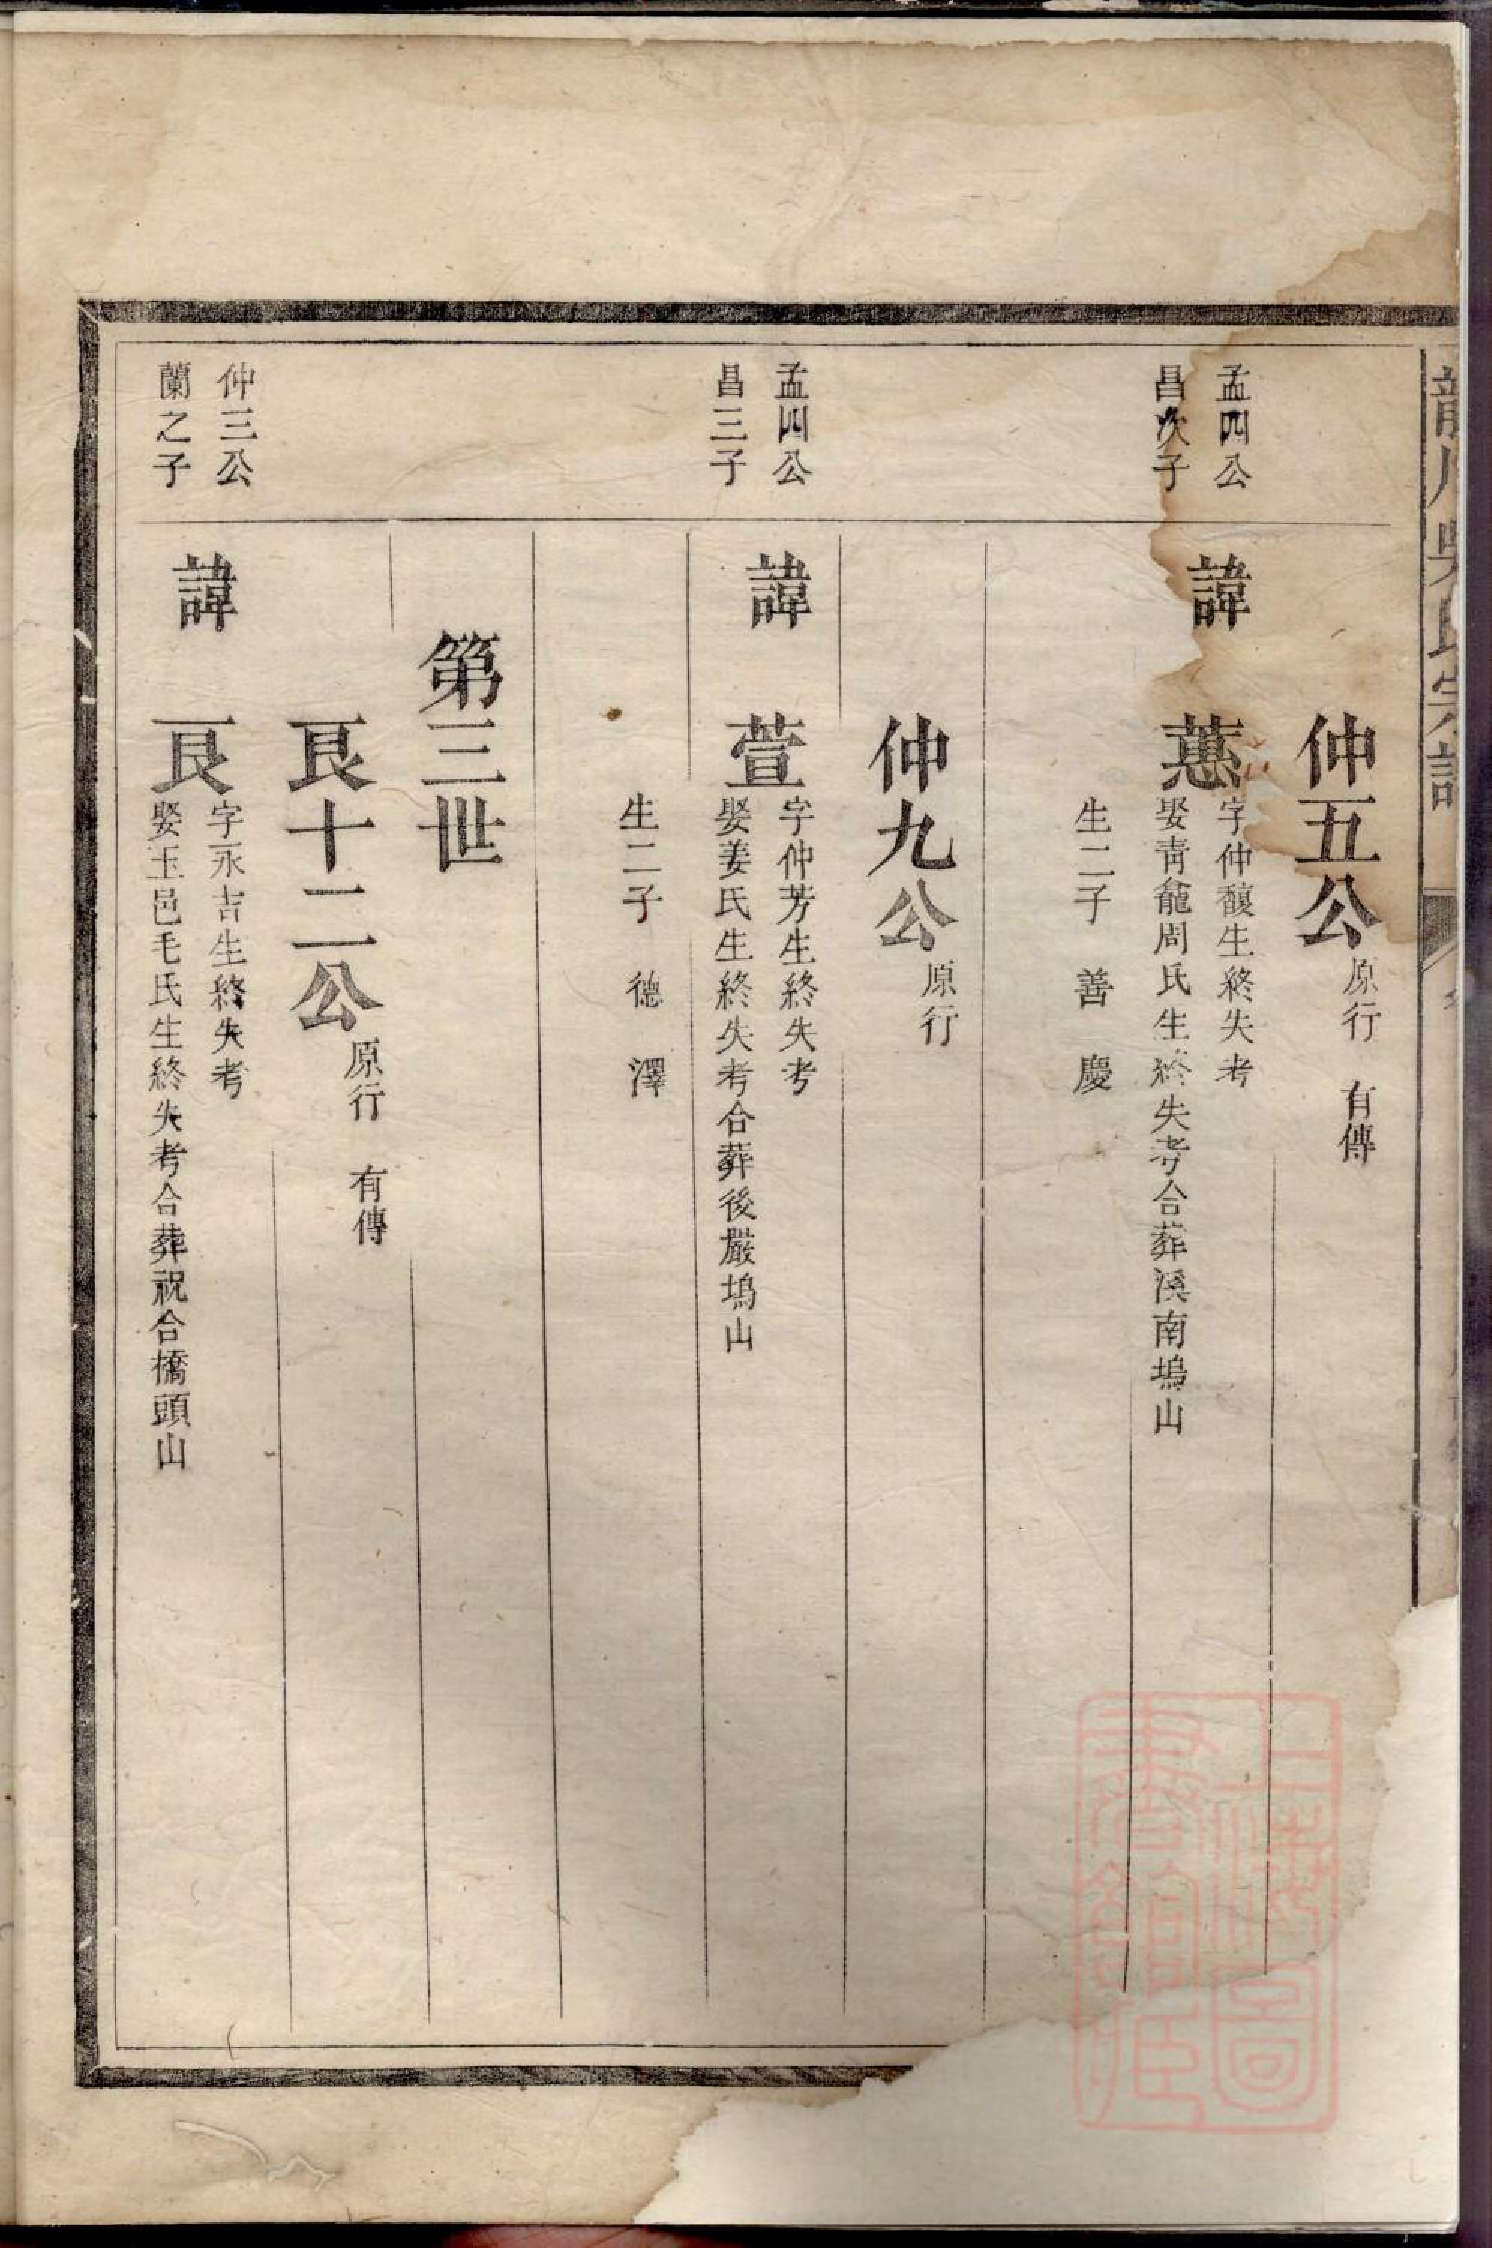 龍川吳氏宗譜
仲五公 原行 有傳
孟四公
昌次子
諱 蕙
字仲馥生終失考
娶青龕周氏生終失考合葬溪南塢山
生二子 善 慶
仲九公 原行
孟四公
昌三子
諱 萱
字仲芳生終失考
娶姜氏生終失考合葬後嚴塢山
生二子 德 澤
第三世
良十二公 原行 有傳
仲三公
蘭之子
諱 良
字永吉生終失考
娶玉邑毛氏生終失考合葬祝合橋頭山
上海圖
書館藏